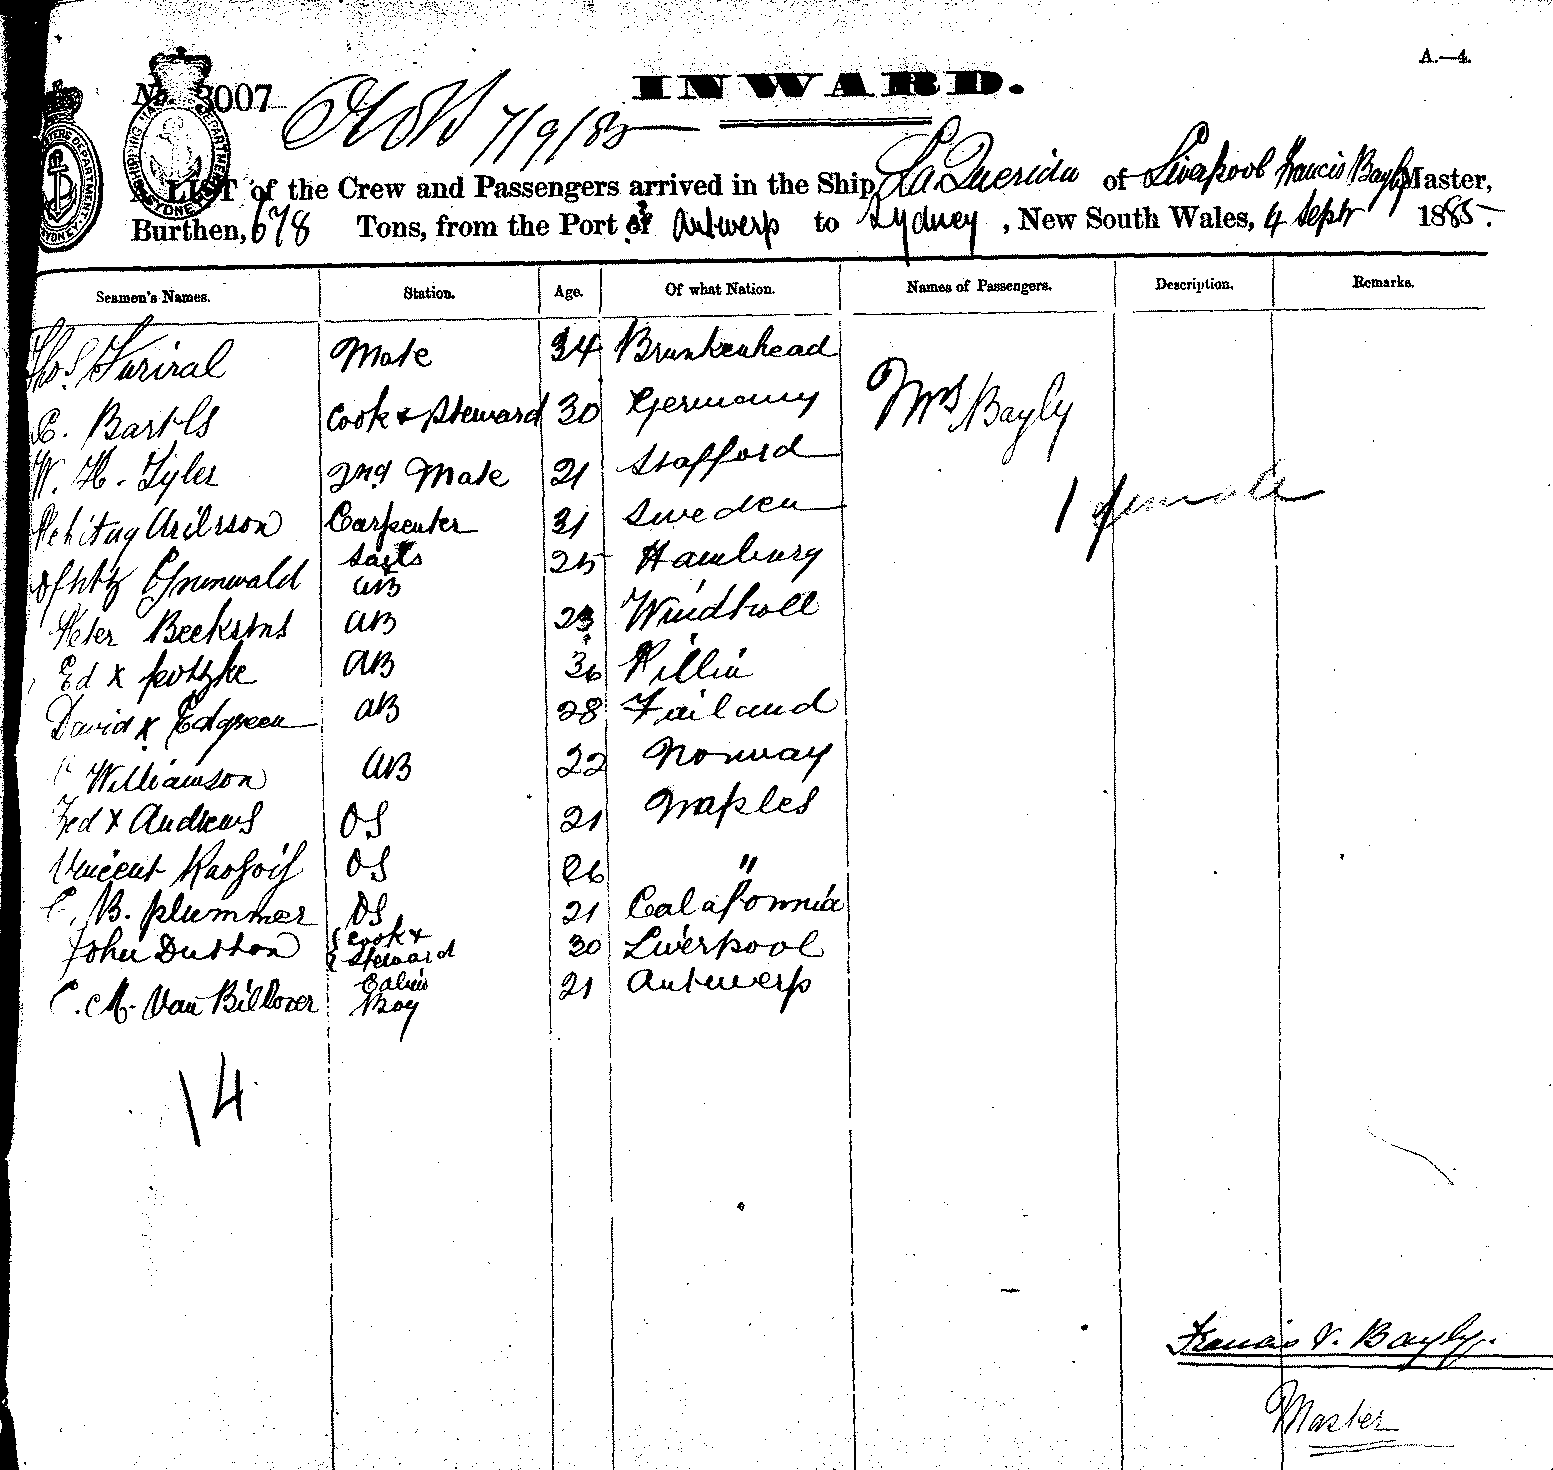 A.—4.
INWARD.
No. 3007 7/9/85
A LIST of the Crew and Passengers arrived in the Ship La Querida of Liverpool Francis Bayly Master,
Burthen, 678 Tons, from the Port of Antwerp to Sydney, New South Wales, 4 Septr 1885.
Seamen's Names. Station. Age. Of what Nation. Names of Passengers. Description. Remarks.
Thos. Mate 34 Brunkenhead
Bartls Cook & Steward 30 Germany Mrs Bayly
W. H. Tyler 2nd Mate 21 Stafford
Carpenter 31 Sweden 1 female
Grunwald Sails AB 25 Hamburg
Peter AB 23
Ed x AB 36 Pillin
David x Edgreen AB 28
Williamson AB 22 Norway
Fred x Andrews OS 21 Naples
Vincent OS 26 "
B. Plummer OS 21 Calafornia
John Dutton Cook & Steward 30 Liverpool
Van Cabin Boy 21 Antwerp
14
Francis V. Bayly.
Master